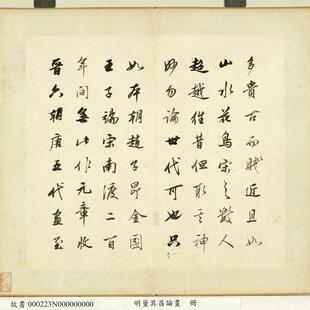 多貴古而賤近且如
山水花鳥宋之數人
超越往昔但取其神
妙勿論世代可也只
如本朝趙子昂金國
王子端宋南渡二百
年間無此作元章收
晉六朝唐五代畫至
故書 000223N000000000
明董其昌論畫 冊